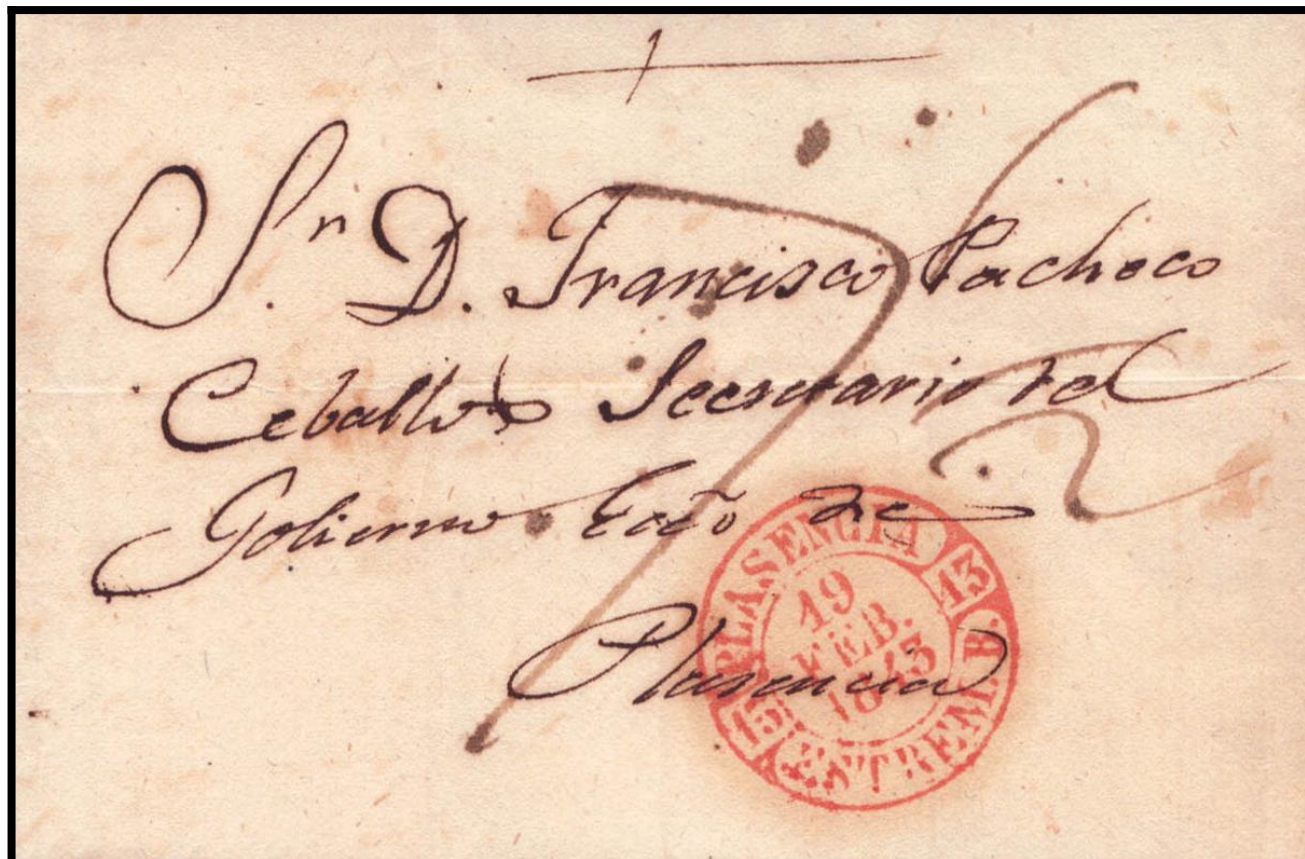 Sr. D. Francisco Pacheco
Ceballos Secretario del
Gobierno Ecco de
Plasencia
PLASENCIA 13
19
FEB.
1843
ESTREM. B.